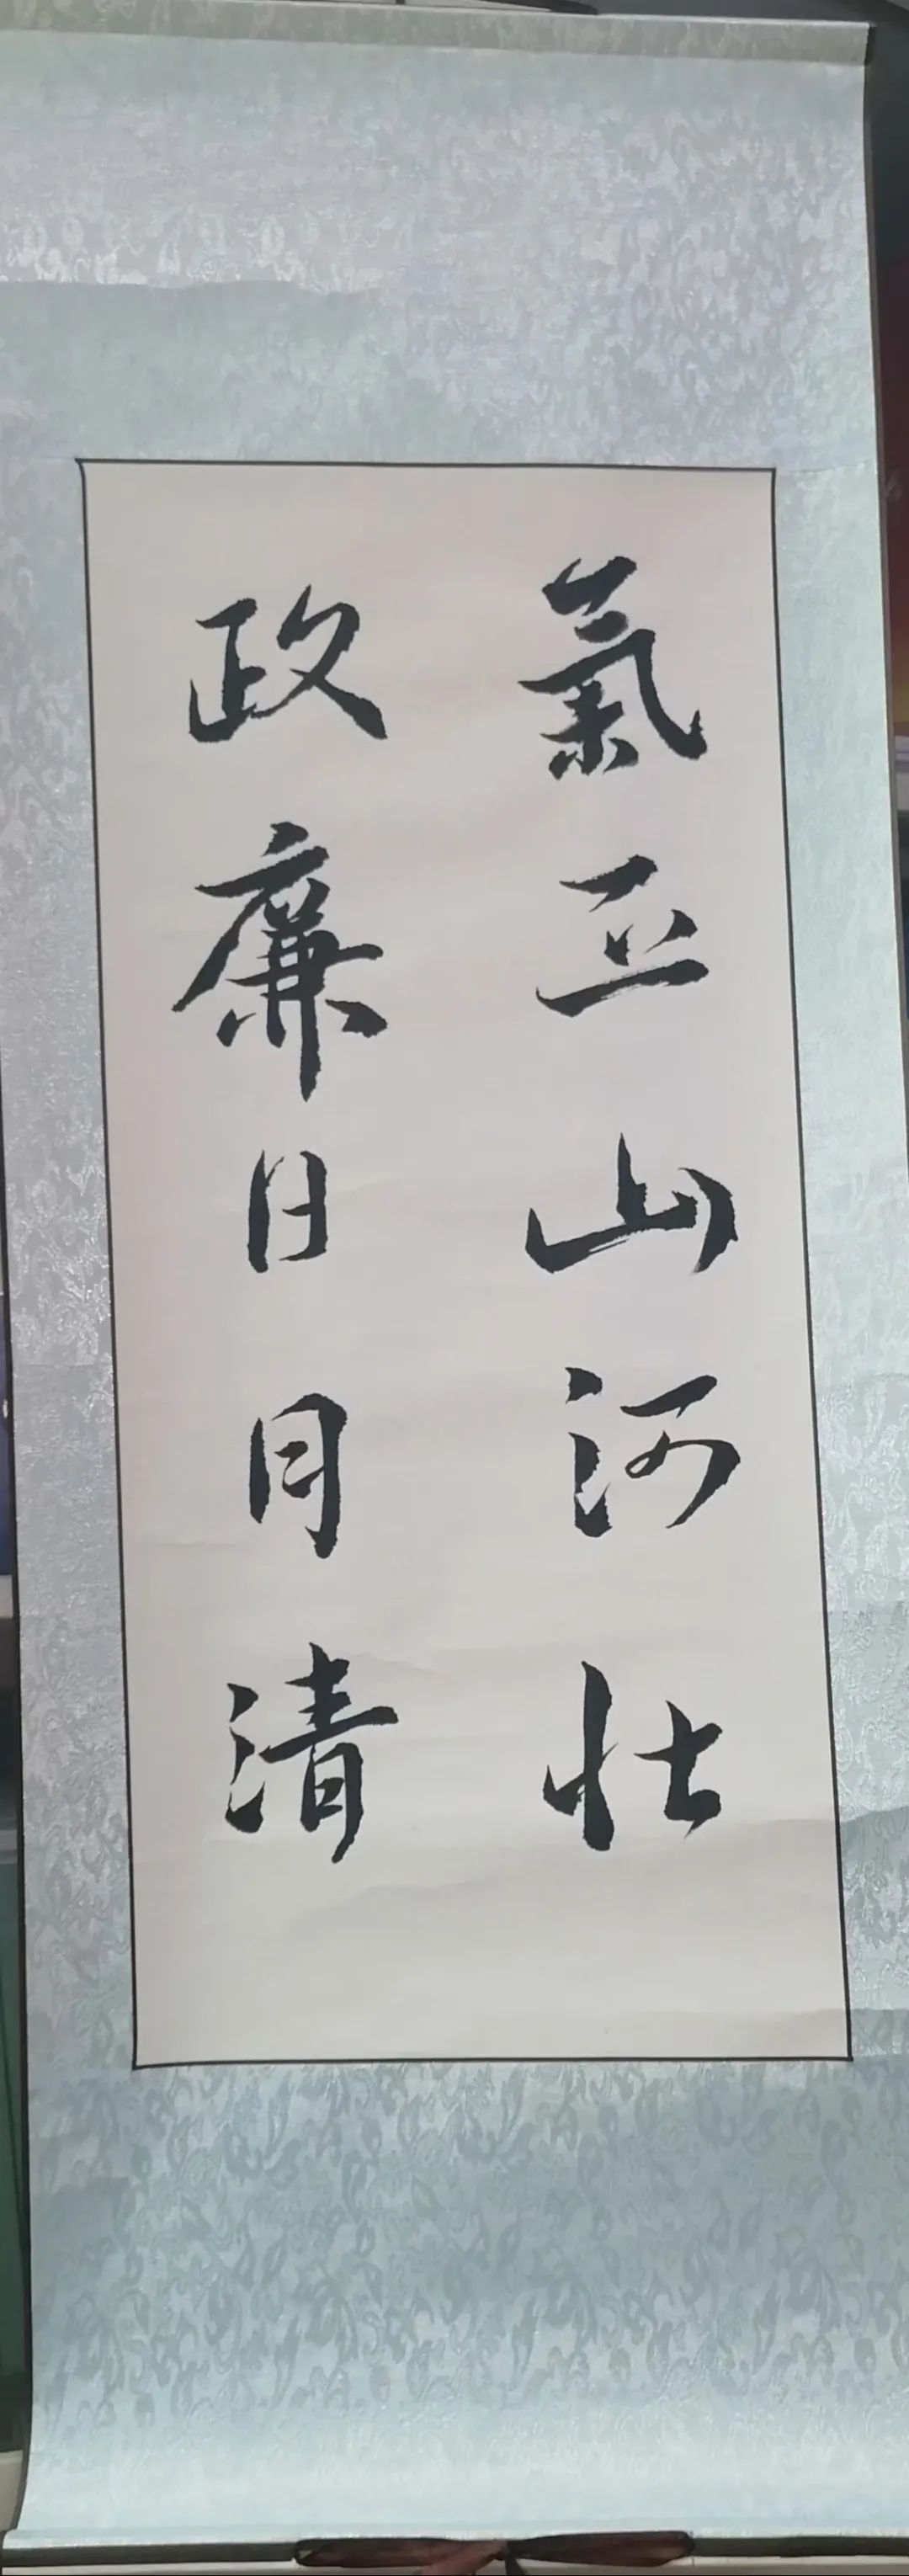 氣正山河壯
政廉日月清